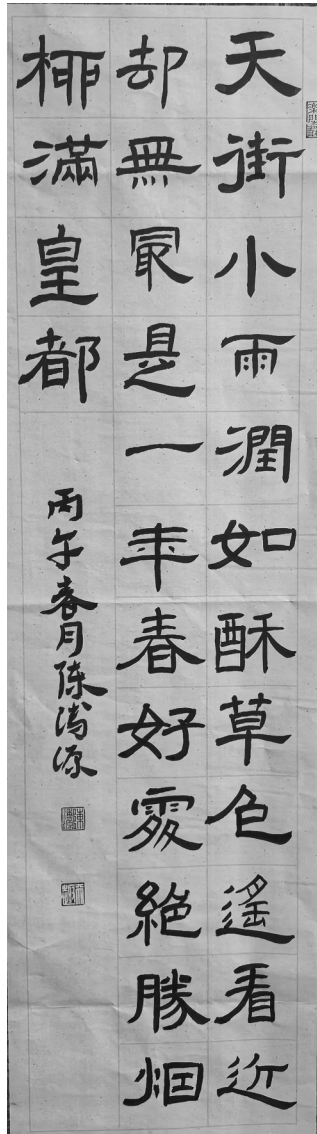 天街小雨潤如酥草色遙看近
却無最是一年春好處絕勝烟
栁滿皇都
丙午春月陳濤源